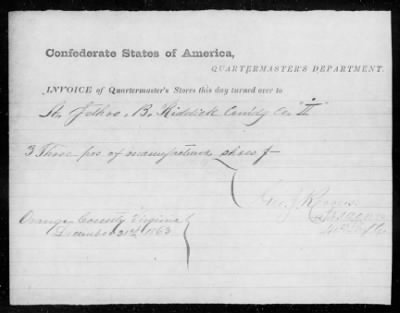 Confederate States of America,
QUARTERMASTER'S DEPARTMENT.
INVOICE of Quartermaster's Stores this day turned over to
Lt. Jethro. B. Riddick Comdg Co.
3 Three prs. of manufactured shoes
Geo. J. Rogers
Orange County Virginia
December 31st 1863